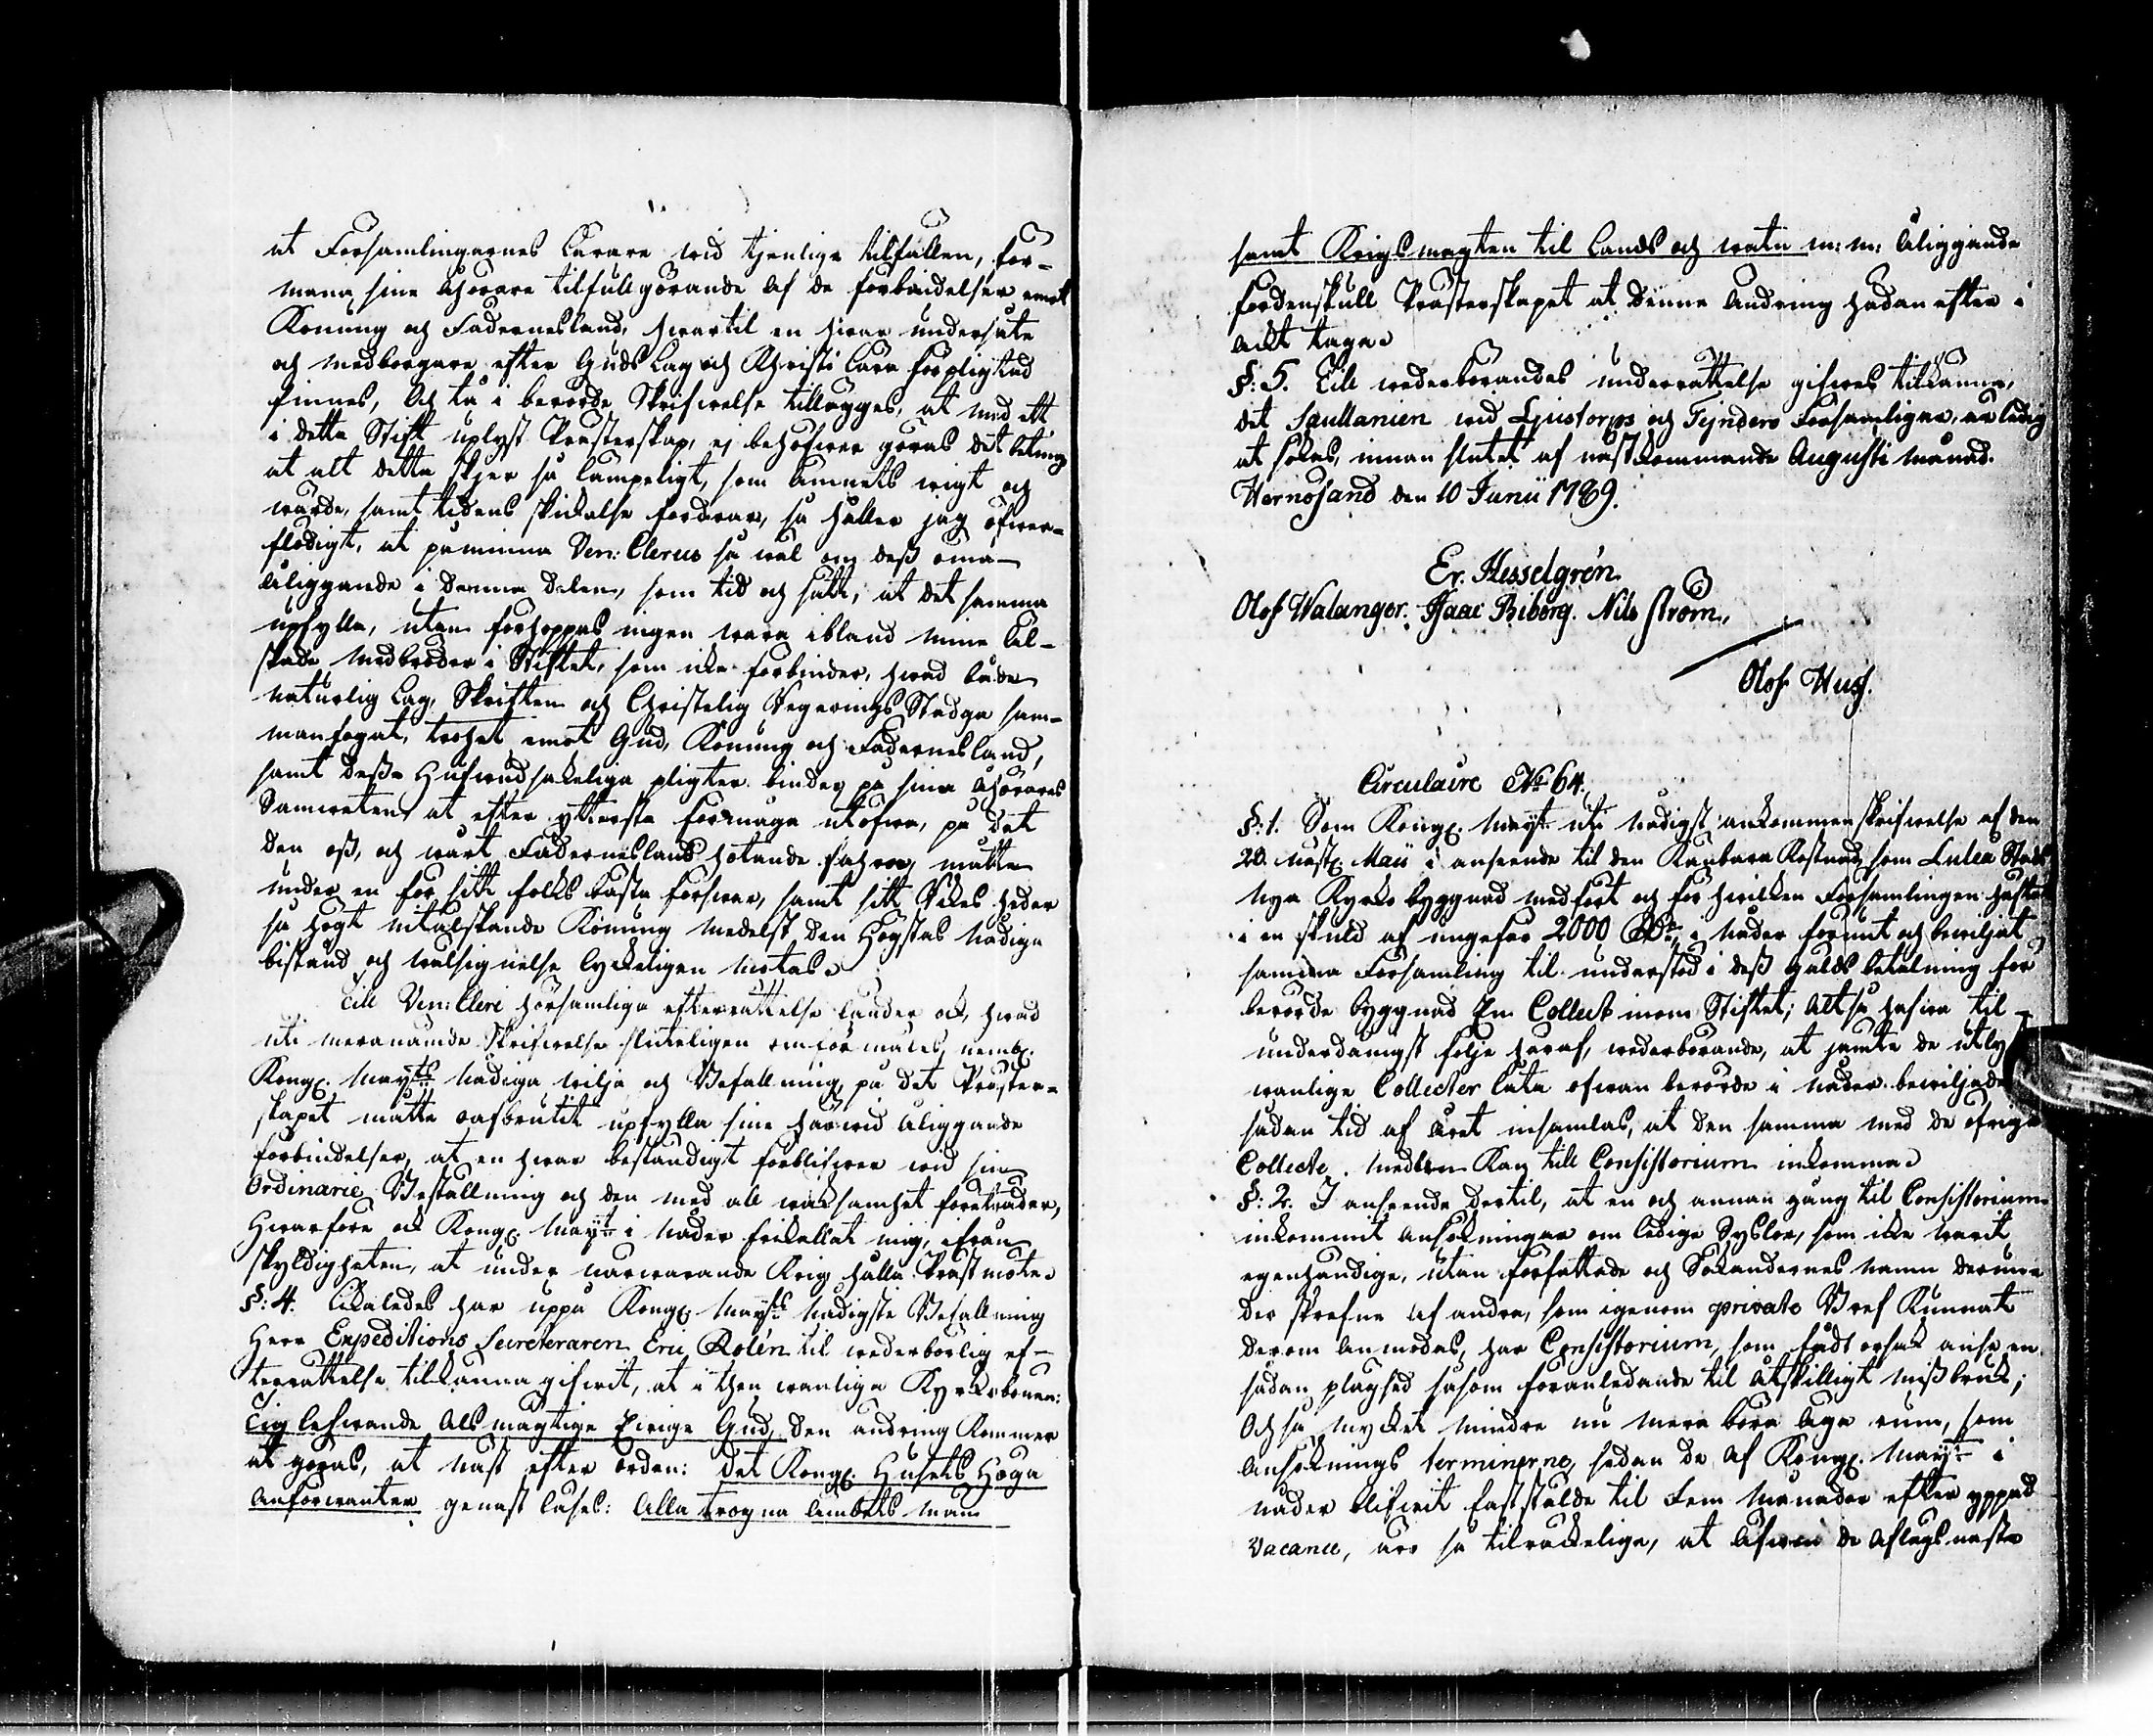 at Församlingarnes Lärare wid tjenlige tilfällen, för-
mana sine Åhörare tilfullgörande af de förbindelser emot
Konung och Fädernesland, hwartil en hwar undersåte
och medborgare efter Guds Lag och Christi Lära förpligtad
finnes, Och då i berörde Skrifwelse tillägges, at med ett
i detta Stift uplyst Prästerskap, ej behöfwer göras det beting
at alt detta skjer så lämpeligt, som Ämnets wigt och
wärde, samt tidens skickelse fordrar, så håller jag öfwer-
flödigt, at påminna Ven: Clerus så wäl om dess öma
åliggande i denna delen, som tid och sätt, at det samma
upfylla, utan förhoppas ingen wara ibland mine Äl-
skade Medbröder i Stiftet, som icke förbinder, hwad både
naturlig Lag, Skriften och Christelig Regerings Stadga sam-
manfogat, trohet emot Gud, Konung och Fädernesland,
samt desse hufwudsakeliga pligter binder på sina Åhörares
Samweten at efter yttersta förmåga utöfwa, på det
den oss, och wårt Fädernesland hotande fahran måtte
under en för sitt folks bästa förswar, samt sitt Rikes heder
så högt nitälskande Konung medelst den Högstas nådiga
bistånd och wälsignelse lyckeligen motas.
Till Ven: Cleri hörsamliga efterrättelse länder ock, hwad
uti meranämde Skrifwelse sluteligen omförmäles, neml.
Kongl. Mayts Nådiga wilja och Befallning, på det Präster-
skapet måtte oafbrutit upfylla sine härwid åliggande
förbindelser, at en hwar beständigt förblifwer wid sin
Ordinarie Beställning och den med all waksamhet förestråder,
Hwarföre ock Kongl. Mayt i Nåder frikallat mig, ifrån
skyldigheten, at under warwarande Krig hålla Prästmöte.
§: 4. Likaledes har uppå Kongl. Mayts Nådigste Befallning
Herr Expeditions Secreteraren Eric Rolén til wederbörlig ef-
terrättelse tilkänna gifwit, at i then wanliga Kyrkobönen:
Tig lefwande Alsmägtige Ewige Gud, den ändring kommer
at göras, at näst efter orden: det Kongl. Husets Höga
Anförwanter genast läses: Alla trogna Ämbets män
samt Krigsmagten til Lands och watn m: m: Åliggande
fördenskull Prästerskapet at denne Ändring hädanefter i
Akt taga.
§: 5. Till wederbörandes underrättelse gifwes tilkänna,
det Sacellanien wid Ljustorps och Tynderö Församlingar, är ledig
at sökas, innan slutet af nästkommande Augusti månad.
Hernösand den 10 Junii 1789.
Er. Hesselgrén
Olof Walanger. Isaac Biberg. Nils Ström.
Olof Huss.
Circulaire No 64.
§: 1. Som Kongl. Mayt uti Nådigst ankommen skrifwelse af den
20. nästl. Maii i anseende til den Kånbara Kostnad, som Luleå Stads
nya Kyrko byggnad medfört och för hwilken Församlingen häftar
i en skuld af ungefär 2000 Rdr, i Nåder förunt och bewiljat
samma Församling til understöd i dess gälds betalning för
berörde byggnad En Collect inom Stiftet; Altså hafwa til
underdånigst följe häraf, wederbörande, at jämte de utlyste
wanlige Collecter låta ofwan berörde i Nåder bewiljade
sådan tid af Året insamlas, at den samma med de öfriga
Collecte medlen kan till Consistorium inkomma.
§: 2. I anseende dertil, at en och annan gång til Consistorium
inkommit ansökningar om ledige Syslor, som icke warit
egenhändige, utan författade och Sökandernes namn derun-
der skrefne af andra, som igenom private Bref kunnat
derom anmodas, har Consistorium, som fådt orsak anse en
sådan plägsed såsom föranledande til åtskilligt missbruk;
Och så mycket mindre nu mera böra äga rum, som
Ansöknings terminerne, sedan de af Kongl. Mayt i
nåder blifwit fastställde til Fem Månader efter yppad
vacance, äro så tilräckelige, at äfwen de aflägsnaste